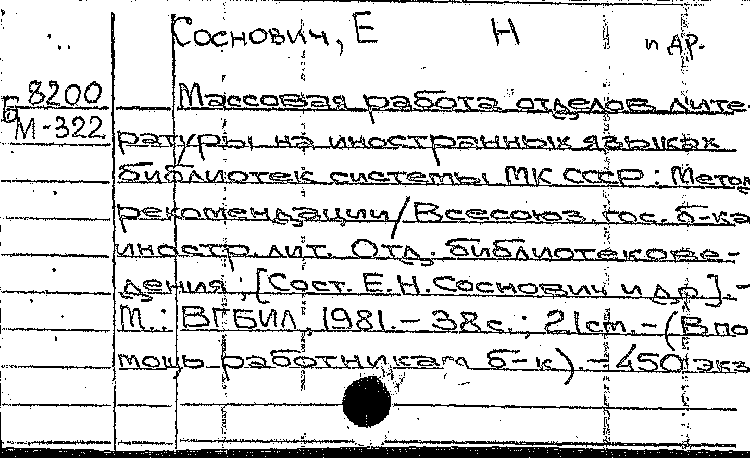 Соснович, Е Н и др.
Б 8200 Массовая работа отделов лите
М-322 ратуры на иностранных языках
библиотек системы МК СССР: Метод
рекомендации/Всесоюз. гос. б-ка
иностр. лит. Отд. библиотекове-
дения; [Сост. Е.Н.Соснович и др].-
М.: ВГБИЛ, 1981.-38с.; 21см.-(В по
мощь работникам б-к).-450 экз